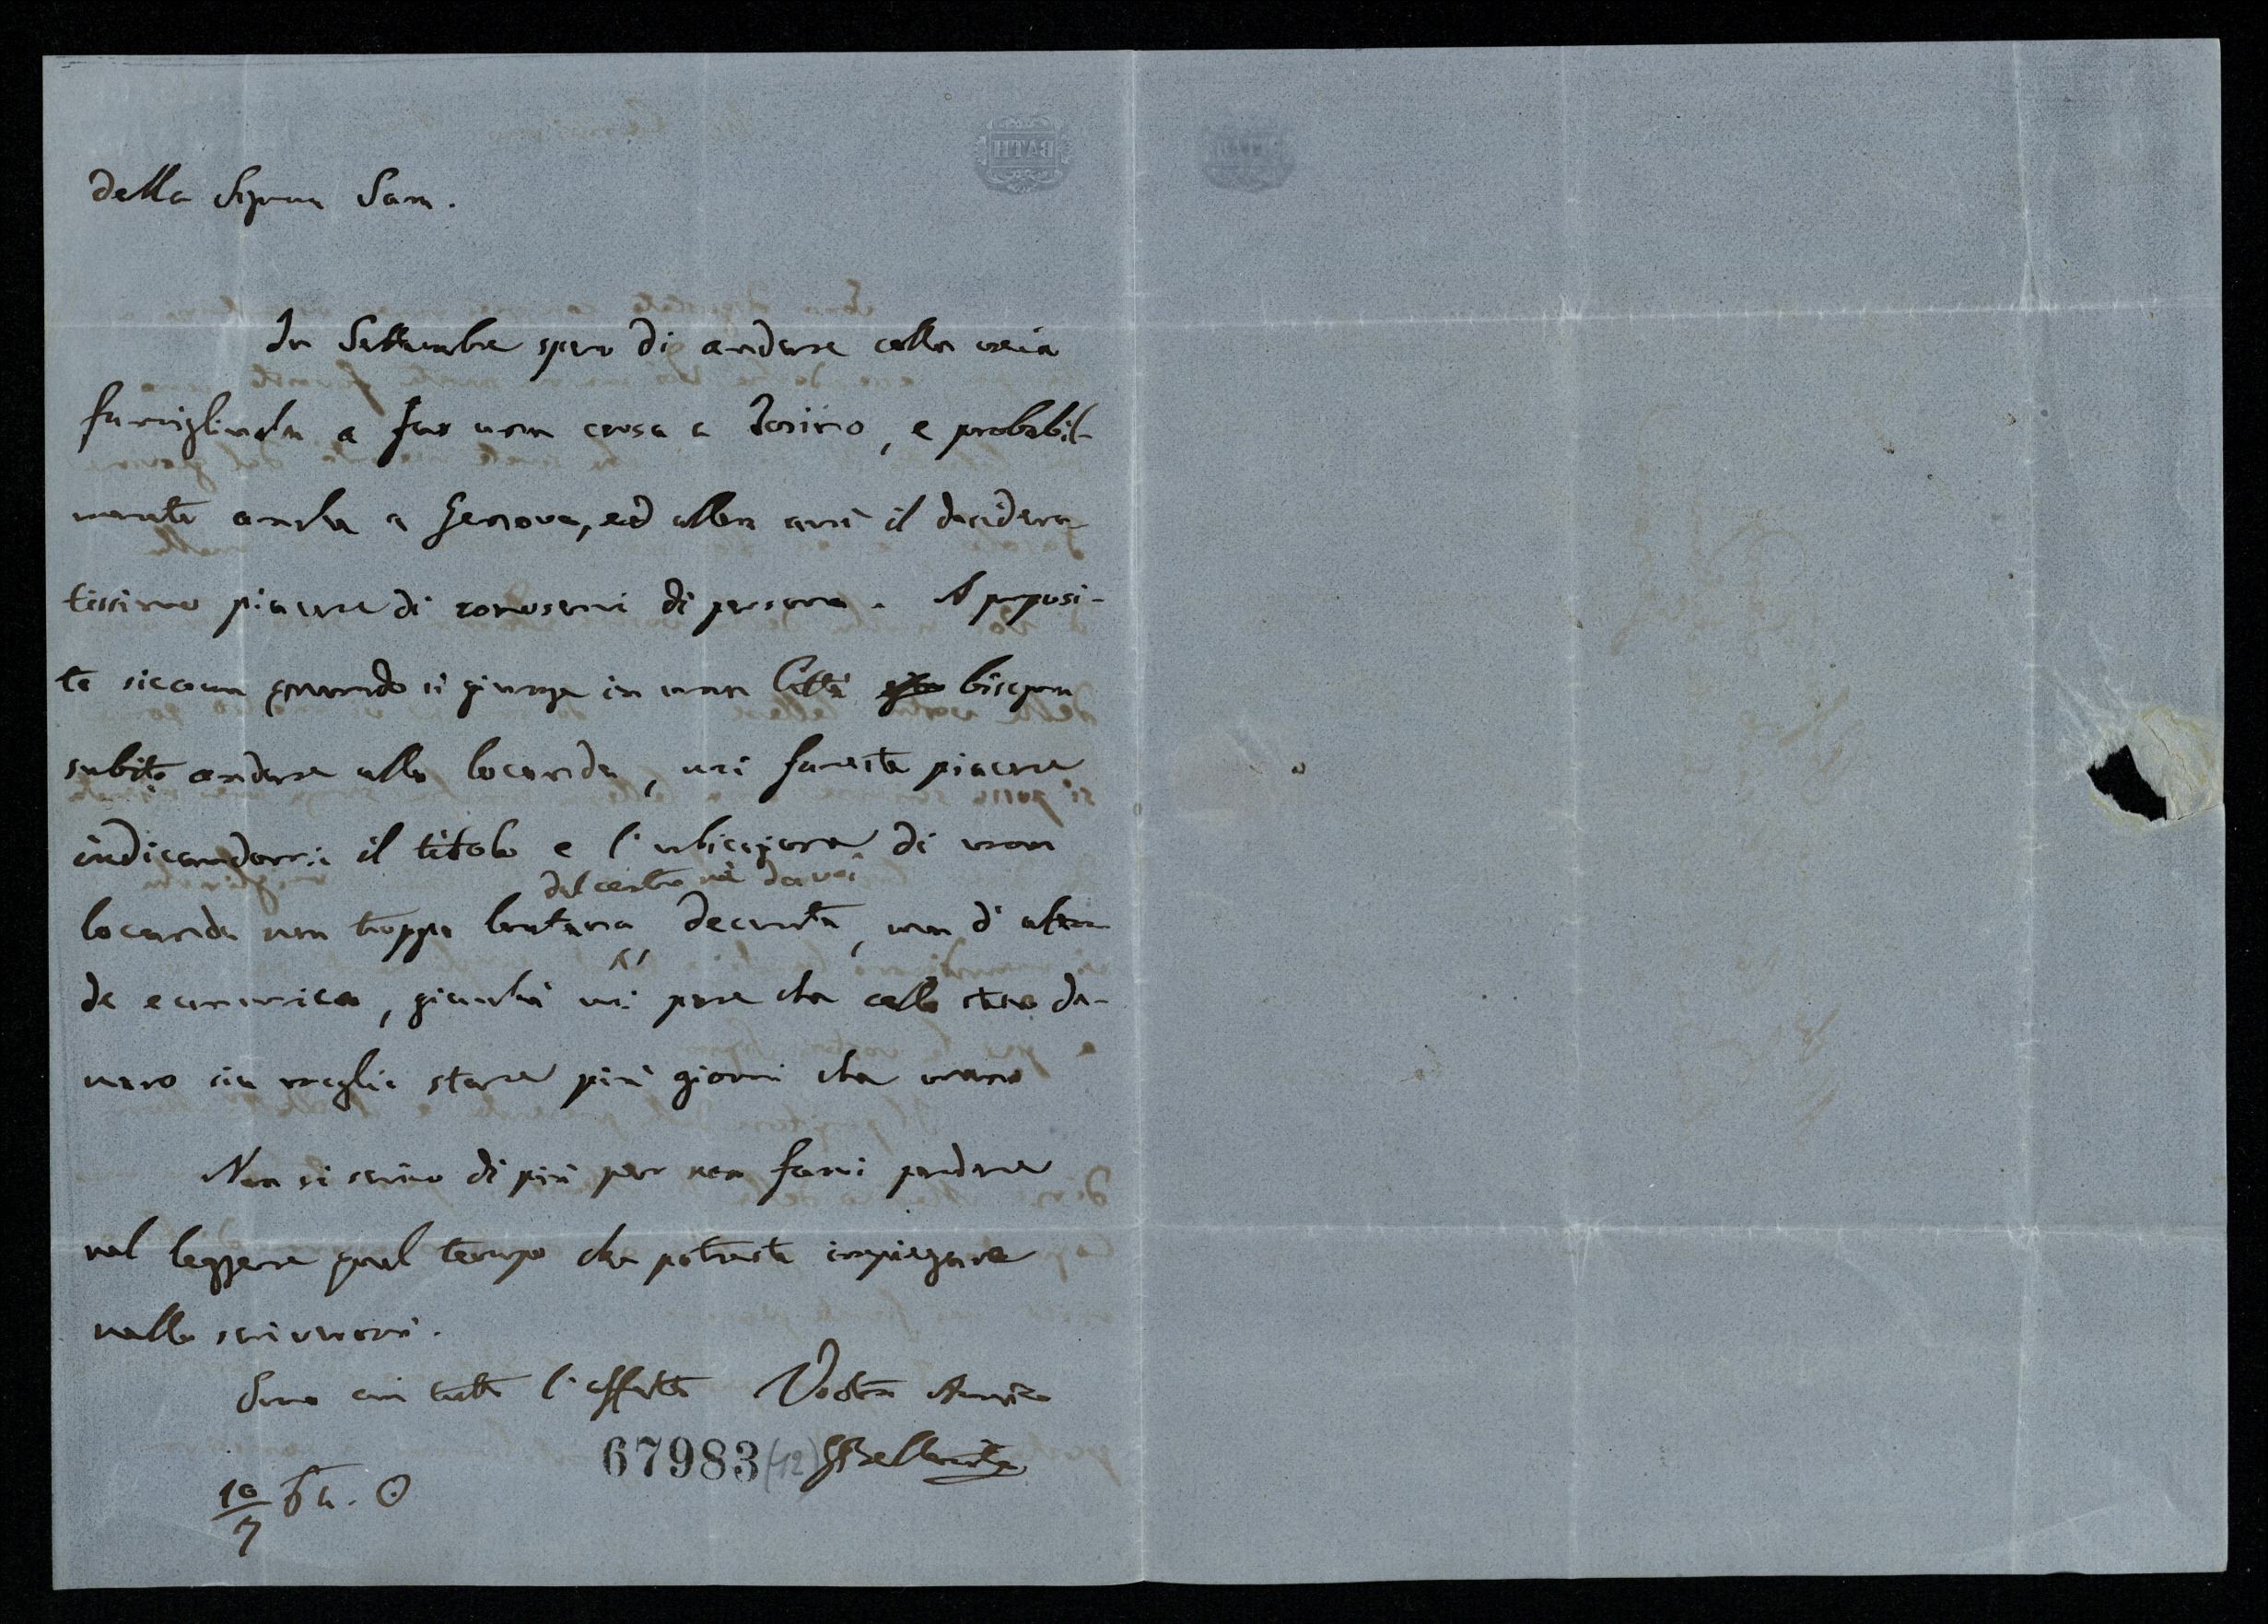 della Signora Sara.
In Settembre spero di andare colla mia
famigliuola a far una corsa a Torino, e probabil-
mente anche a Genova, ed allora avrò il desidera-
tissimo piacere di conoscervi di persona. A proposi-
to siccome quando si giunge in una Città bisogna
subito andare alla locanda, mi fareste piacere
indicandomi il titolo e l'ubicazione di una
dal centro nè da voi
locanda non troppo lontana, decente, ma d'altron-
de economica, giacchè mi pare che collo stesso da-
naro sia meglio stare più giorni che meno
Non vi scrivo di più per non farvi perdere
nel leggere quel tempo che potreste impiegare
nello scrivermi.
Sono con tutto l'affetto Vostro Amico
67983 (12) GBellavitis
10/7 64. ⊙
BATH